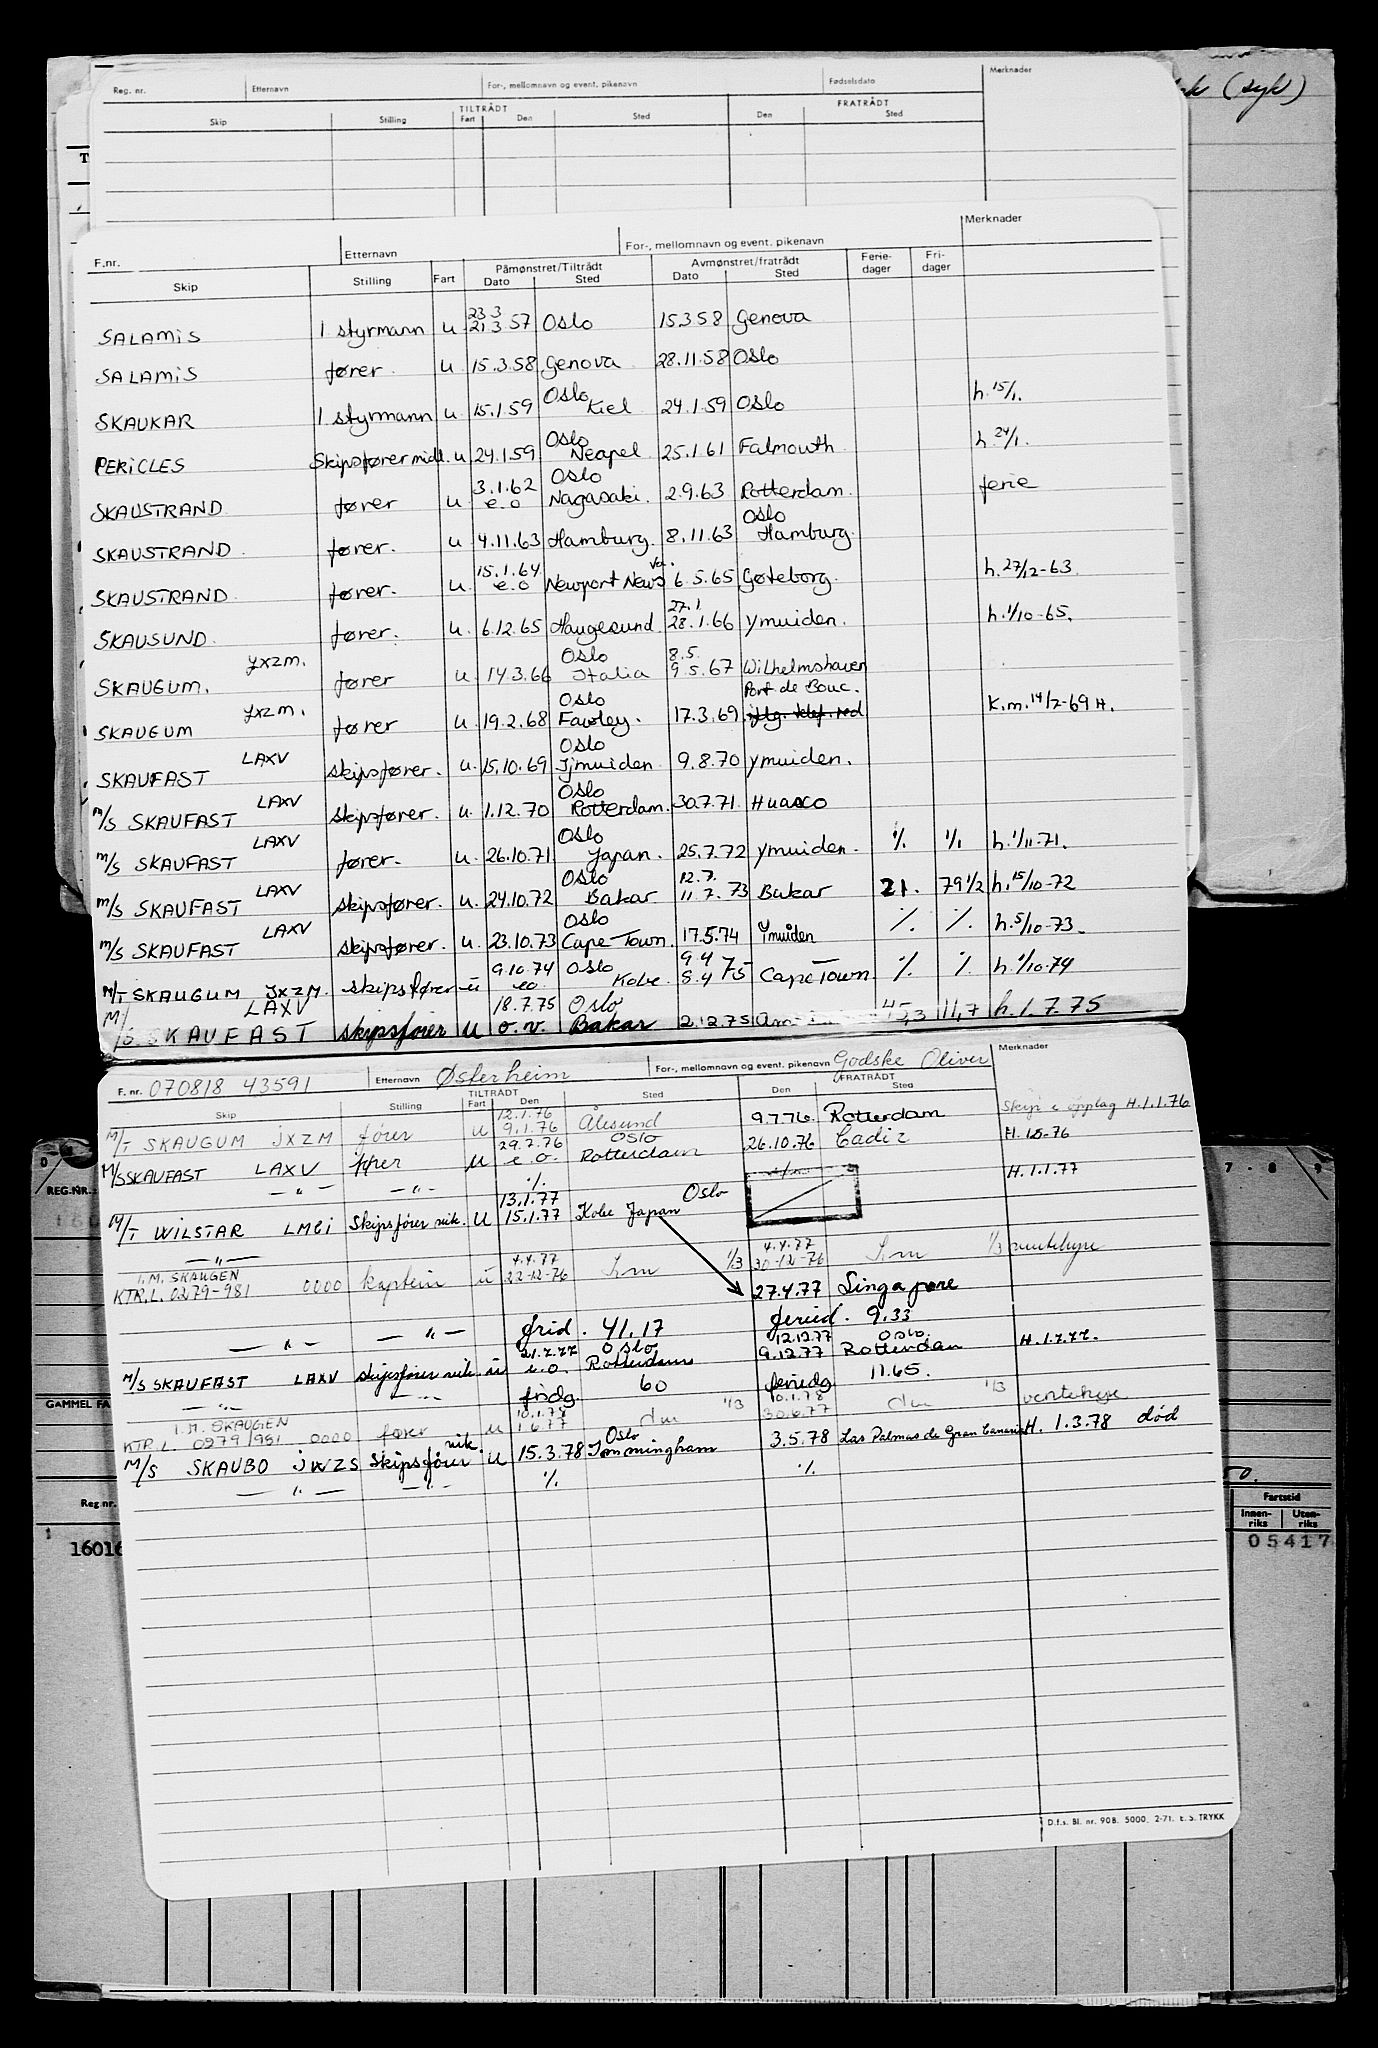 Reg. nr. Etternavn For-, mellomnavn og event. pikenavn Fødselsdato Merknader
(syk)
TILTRÅDT FRATRÅDT
Skip Stilling Fart Den Sted Den Sted
F.nr. Etternavn For-, mellomnavn og event. pikenavn Merknader
Påmønstret/Tiltrådt Avmønstret/fratrådt Ferie-dager Fri-dager
Skip Stilling Fart Dato Sted Dato Sted
23 3
SALAMIS 1 styrmann u 21.3 57 Oslo 15358 Genova
SALAMIS fører. u 15.3.58 Genova 28.11.58 Oslo
Oslo
SKAUKAR 1 styrmann u 15.1.59 Kiel 24.1.59 Oslo h. 15/1.
Oslo
PERICLES Skipsfører midl. u 24.1.59 Neapel 25.1.61 Falmouth h. 24/1.
3.1.62 Oslo
SKAUSTRAND fører u e.o Nagasaki. 2.9.63 Rotterdam. ferie
Oslo
SKAUSTRAND fører. u 4.11.63 Hamburg. 8.11.63 Hamburg.
15.1.64 Va.
SKAUSTRAND fører. u. e.o Newport News 6.5.65 Gøteborg. h. 27/12-63.
27.1
SKAUSUND. fører. u. 6.12.65 Haugesund. 28.1.66 Ymuiden. h. 1/10-65.
Oslo 8.5.
SKAUGUM. JXZM. fører u. 14.3.66 Italia 9.5.67 Wilhelmshaven
Oslo Port de Bouc.
SKAUGUM JXZM. fører u. 19.2.68 Fawley. 17.3.69 K.m. 14/2-69 H.
Oslo
SKAUFAST LAXV skipsfører. u. 15.10.69 Ijmuiden 9.8.70 Ymuiden.
Oslo
M/S SKAUFAST LAXV skipsfører. u. 1.12.70 Rotterdam. 30.7.71 Huasco
Oslo
M/S SKAUFAST LAXV fører. u. 26.10.71 Japan. 25.7.72 Ymuiden. % % h. 1/11-71.
Oslo 12.7.
M/S SKAUFAST LAXV skipsfører. u. 24.10.72 Bakar 11.7.73 Bakar 21. 79 1/2 h. 15/10-72
Oslo
M/S SKAUFAST LAXV skipsfører. u. 23.10.73 Cape Town. 17.5.74 Ymuiden % % h. 5/10-73.
9.10.74 Oslo 9.4
M/T SKAUGUM JXZM. skipsfører u eo Kobe 8.4 75 Cape Town % % h. 1/10-74
18.7.75 Oslo
M/S SKAUFAST LAXV skipsfører u o.v. Bakar 2.12.75 45,3 11,7 h. 1.7.75
F. nr. 070818 43591 Etternavn Østerheim For-, mellomnavn og event. pikenavn Godske Oliver Merknader
TILTRÅDT FRATRÅDT
Skip Stilling Fart Den Sted Den Sted
12.1.76
M/T SKAUGUM JXZM fører u 9.1.76 Ålesund 9.7.76. Rotterdam Skip i opplag H.1.1.76
29.7.76 Oslo
M/S SKAUFAST LAXV fører u e.o. Rotterdam 26.10.76 Cadiz
— " — — " — % H.1.1.77
13.1.77 Oslo
M/T WILSTAR LMGI Skipsfører vik. u 15.1.77 Kobe Japan
— " — 4.4.77 4.4.77
I.M. SKAUGEN
KTR.L. 0279-981 0000 kaptein u 22-12-76 1/3 30-12-76 1/3 ventehyre
27.4.77 Singapore
— " — — " — frid. 41.17 feried. 9.33
21.7.77 Oslo 12.12.77 Oslo.
M/S SKAUFAST LAXV skipsfører vik. u e.o. Rotterdam 9.12.77 Rotterdam H.1.7.77.
— " — — " — fridg. 60 feriedg 11.65.
I.M. SKAUGEN 10.1.78 10.1.78
KTR.L. 0279/981 0000 fører u 1.6.77 1/3 30.6.77 1/3 ventehyre
Oslo
M/S SKAUBO JWZS Skipsfører vik. u 15.3.78 Immingham 3.5.78 Las Palmas de Gran Canaria H. 1.3.78 død
— " — — " — % %
D.f.s. Bl. nr. 90B. 5000. 2-71. E.S. TRYKK
REG.NR. 7 - 8 - 9
GAMMEL FA
Reg.nr. Fartstid
Innen-riks Uten-riks
1 16016 05417